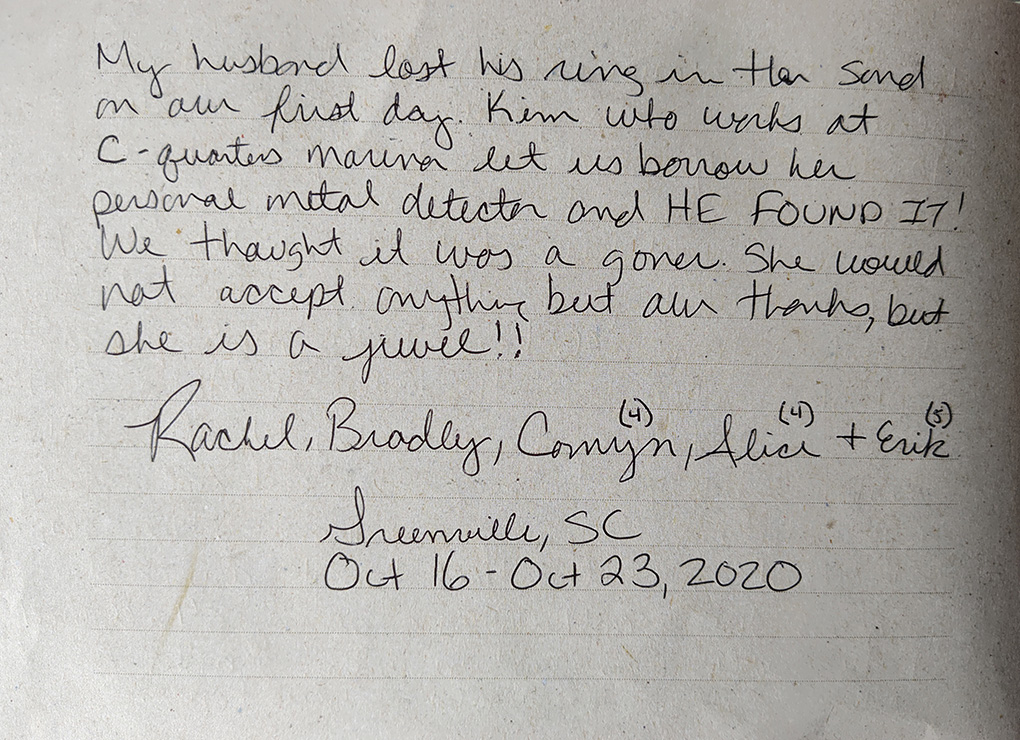 My husband lost his ring in the sand
on our first day. Kim who works at
C-quarters marina let us borrow her
personal metal detector and HE FOUND IT!
We thought it was a goner. She would
not accept anything but our thanks, but
she is a jewel!!
Rachel, Bradley, Camyn (4), Alice (4) + Erik (5)
Greenville, SC
Oct 16 - Oct 23, 2020